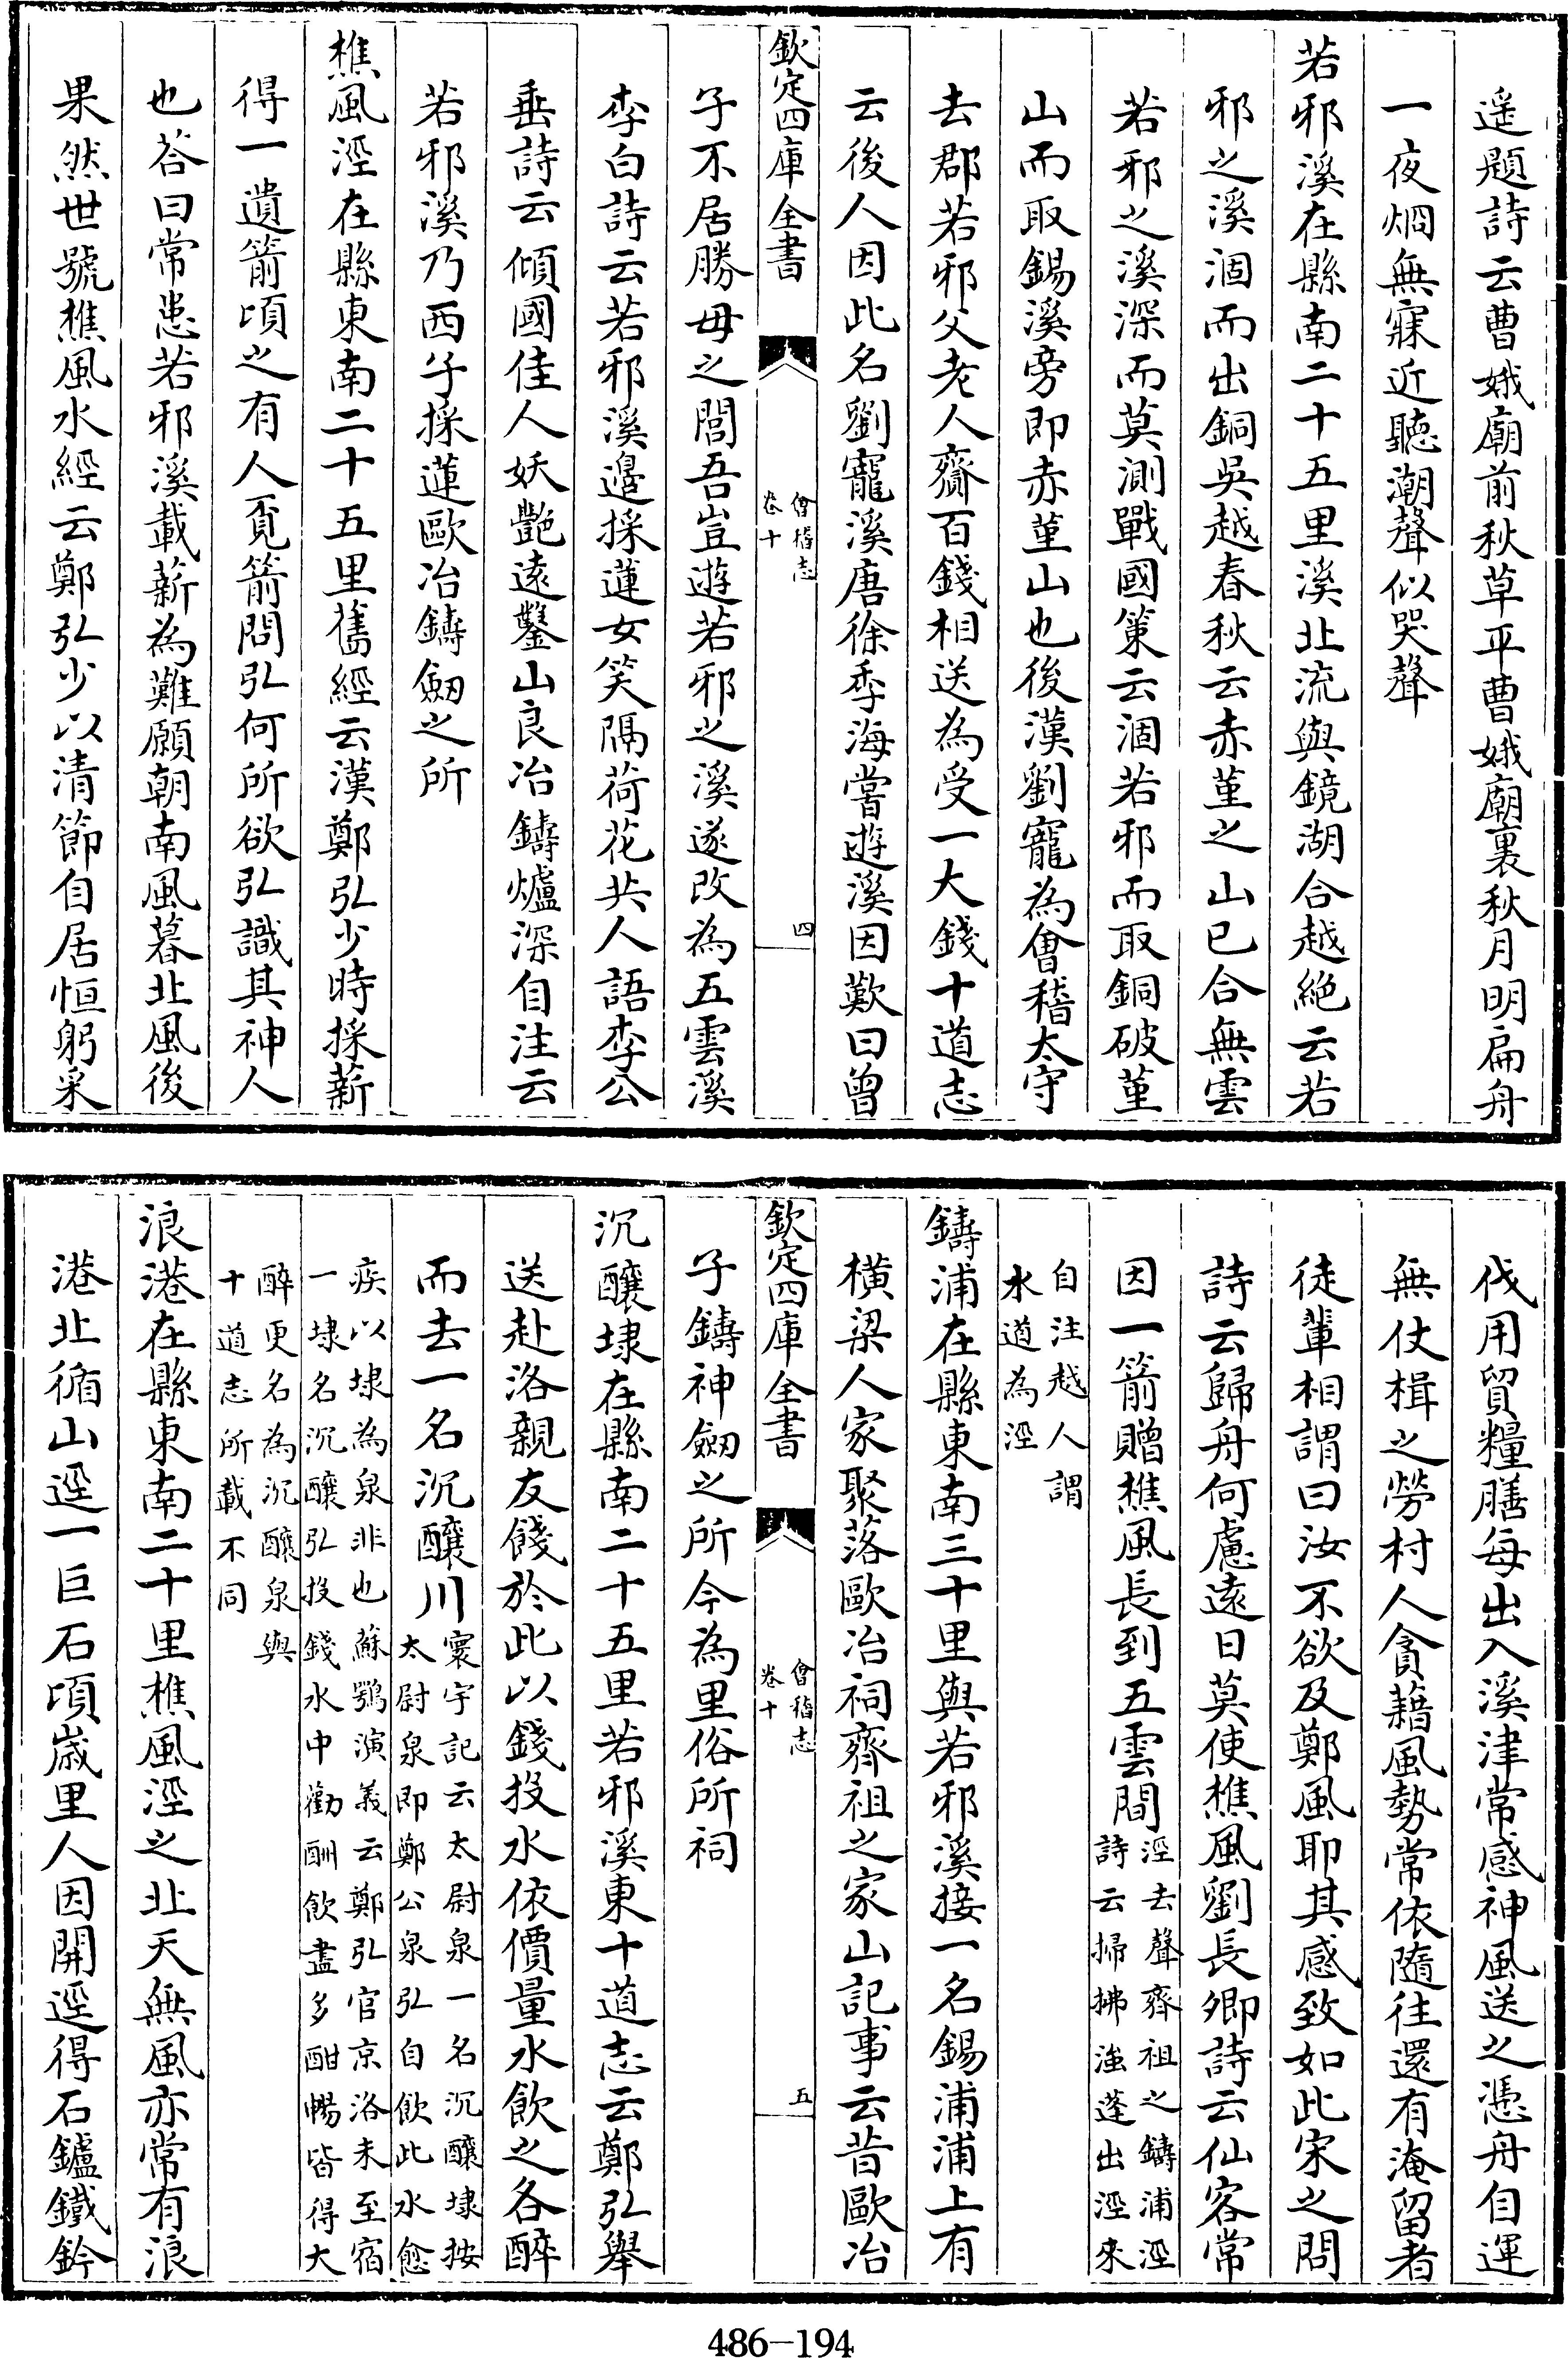 遥題詩云曹娥廟前秋草平曹娥廟裏秋月明扁舟
一夜烱無寐近聽潮聲似哭聲
若邪溪在縣南二十五里溪北流與鏡湖合越絶云若
邪之溪涸而出銅吳越春秋云赤堇之山已合無雲
若邪之溪深而莫測戰國策云涸若邪而取銅破堇
山而取錫溪旁即赤堇山也後漢劉寵為會稽太守
去郡若邪父老人齎百錢相送為受一大錢十道志
云後人因此名劉寵溪唐徐季海嘗遊溪因歎曰曾
欽定四庫全書
會稽志
卷十
四
子不居勝母之閭吾豈遊若邪之溪遂改為五雲溪
李白詩云若邪溪邉採蓮女笑隔荷花共人語李公
垂詩云傾國佳人妖艷遠鑿山良冶鑄爐深自注云
若邪溪乃西子採蓮歐冶鑄劒之所
樵風涇在縣東南二十五里舊經云漢鄭弘少時採薪
得一遺箭頃之有人覔箭問弘何所欲弘識其神人
也荅曰常患若邪溪載薪為難願朝南風暮北風後
果然世號樵風水經云鄭弘少以清節自居恒躬采
伐用貿糧膳每出入溪津常感神風送之憑舟自運
無仗楫之勞村人貪藉風勢常依隨往還有淹留者
徒輩相謂曰汝不欲及鄭風耶其感致如此宋之問
詩云歸舟何慮遠日莫使樵風劉長卿詩云仙客常
因一箭贈樵風長到五雲間涇去聲齊祖之鑄浦涇
詩云掃拂漁蓬出涇來
自注越人謂
水道為涇
鑄浦在縣東南三十里與若邪溪接一名錫浦浦上有
橫梁人家聚落歐冶祠齊祖之家山記事云昔歐冶
欽定四庫全書
會稽志
卷十
五
子鑄神劒之所今為里俗所祠
沉釀埭在縣南二十五里若邪溪東十道志云鄭弘舉
送赴洛親友餞於此以錢投水依價量水飲之各醉
而去一名沉釀川寰宇記云太尉泉一名沉釀埭按
太尉泉即鄭公泉弘自飲此水愈
疾以埭為泉非也蘇鶚演義云鄭弘官京洛未至宿
一埭名沉釀弘投錢水中勸酬飲盡多酣暢皆得大
醉更名為沉釀泉與
十道志所載不同
浪港在縣東南二十里樵風涇之北天無風亦常有浪
港北循山逕一巨石頃嵗里人因開逕得石鑪鐵鈐
486-194